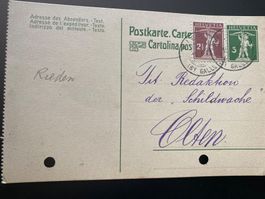 Adresse des Absenders.-Text.
Adresse de l'expéditeur.-Texte.
Indirizzo del mittente.-Testo.
Postkarte. Carte
Cartolina pos
HELVETIA
HELVETIA
2½
5
Rieden
Tit. Redaktion
der „Schildwache
Olten